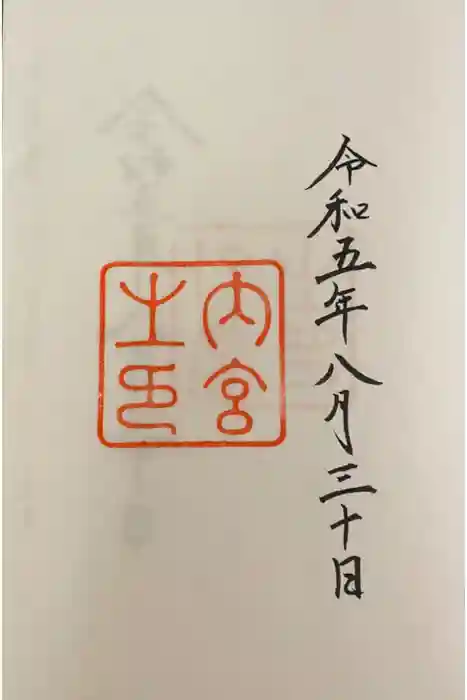 令和五年八月三十日
内宮
之印